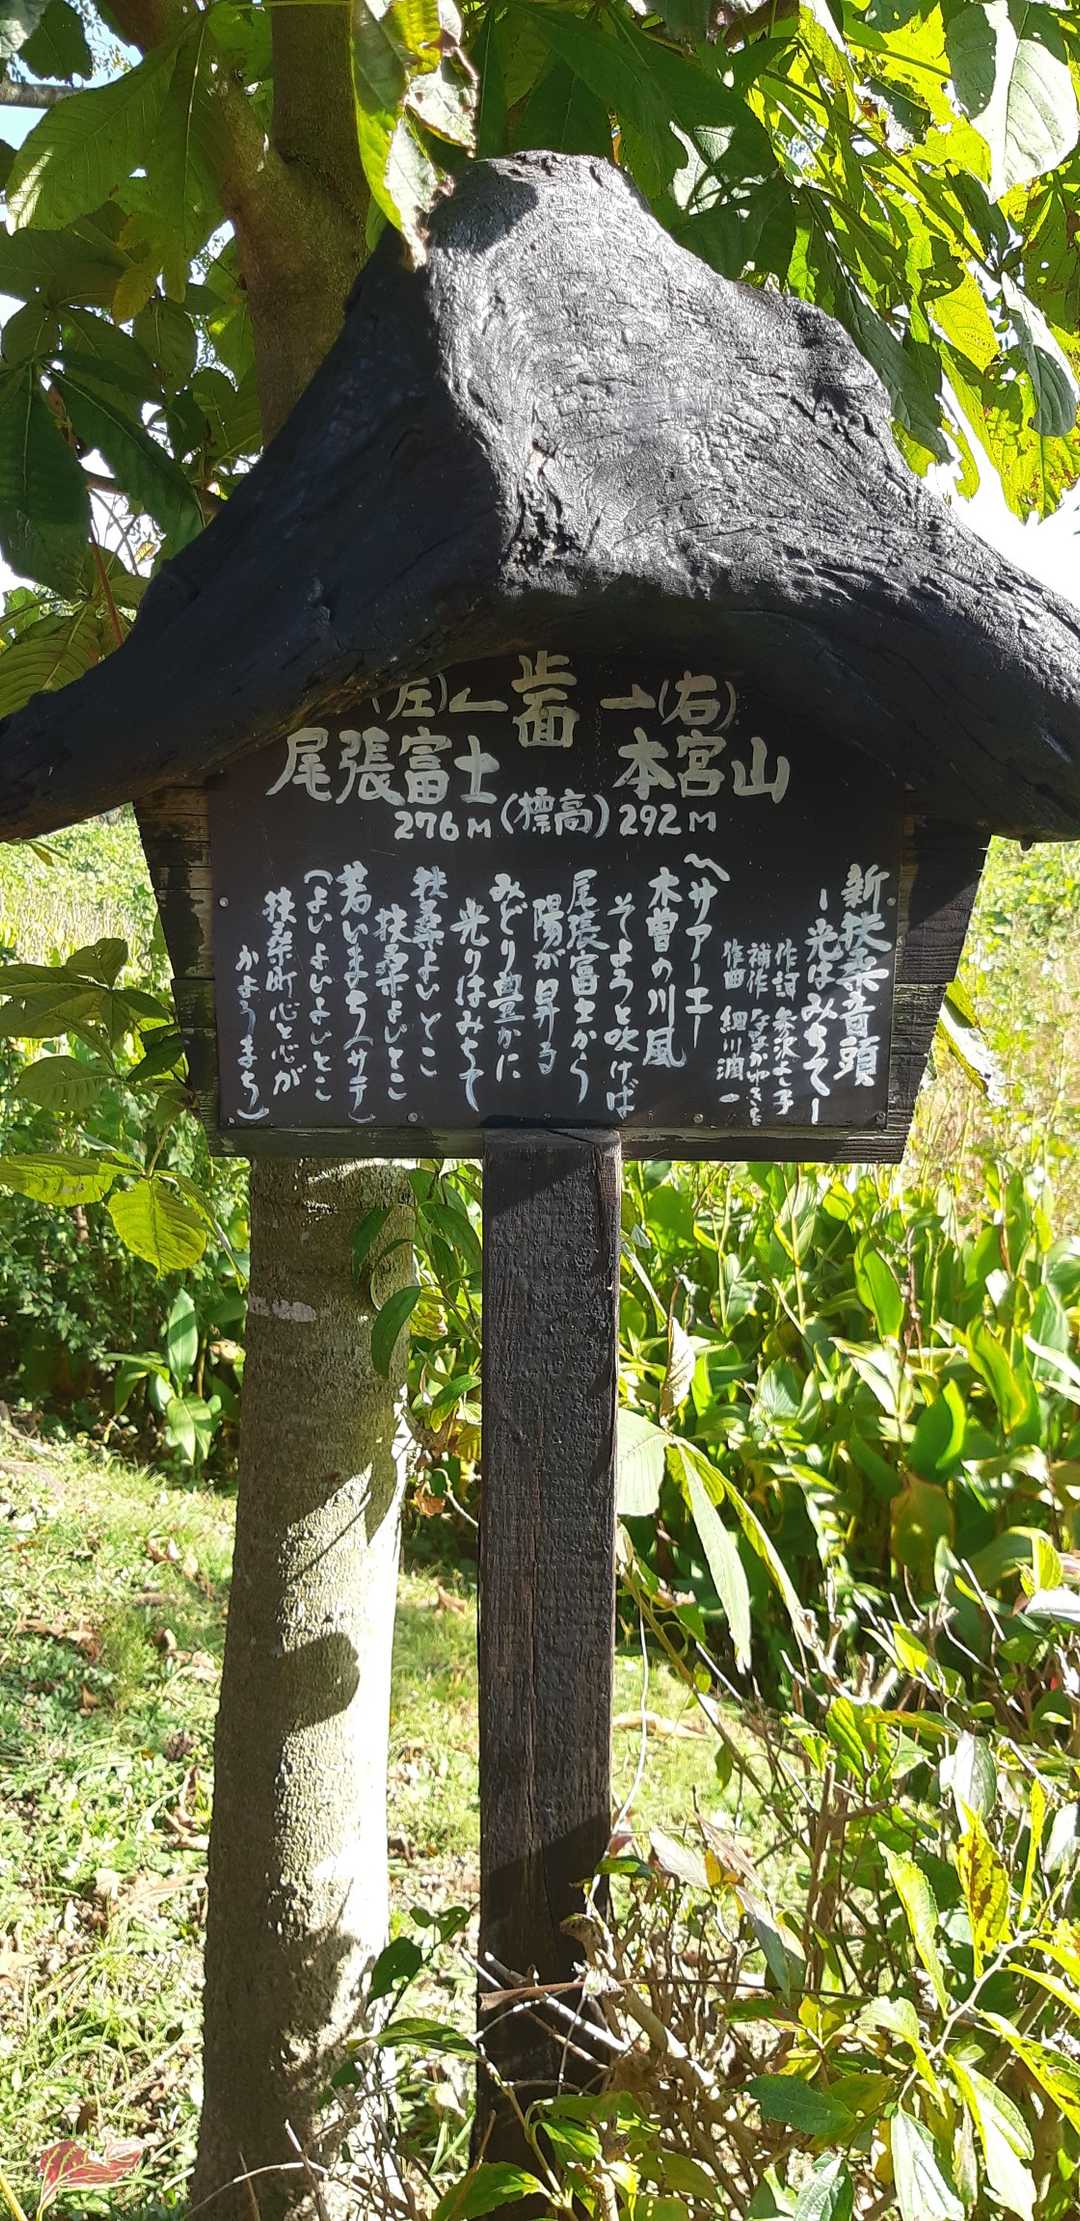 (左)← 正面 →(右)
尾張富士 本宮山
276M (標高) 292M
新扶桑音頭
ー光はみちてー
作詞 参沢よし子
補作 ななかゆきを
作曲 細川潤一
〽サアーエー
木曽の川風
そよろと吹けば
尾張富士から
陽が昇る
みどり豊かに
光りはみちて
扶桑よいとこ
扶桑よいとこ
若いまち(サテ)
(よいよいよいとこ
扶桑町心と心が
かようまち)